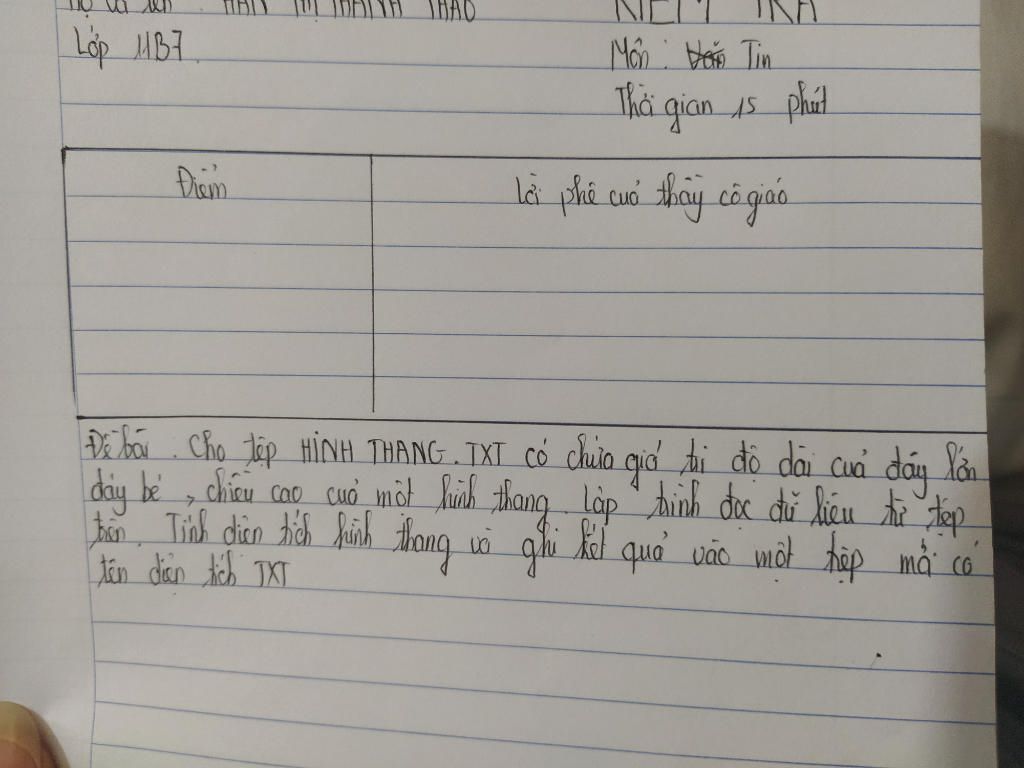 Họ và tên : HÀN THỊ THANH THẢO
KIỂM TRA
Lớp 11B7.
Môn : Tin
Thời gian 15 phút
Điểm
Lời phê cuả thầy cô giáo
Đề bài . Cho tệp HÌNH THANG . TXT có chứa giá trị độ dài cuả đáy lớn
đáy bé , chiều cao cuả một hình thang. Lập trình đọc dữ liệu từ tệp
trên. Tính diện tích hình thang và ghi kết quả vào một tệp mới có
tên diện tích TXT